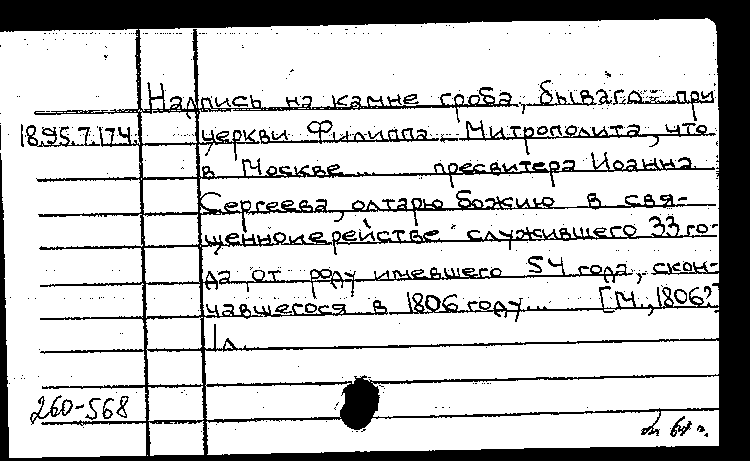 Надпись на камне гроба, бываго при
18.95.7.174. церкви Филиппа Митрополита, что
в Москве... пресвитера Иоанна
Сергеева, олтарю божию в свя-
щенноиерействе служившего 33 го-
да, от роду имевшего 54 года, скон-
чавшегося в 1806 году... [М., 1806?]
1 л.
260-568